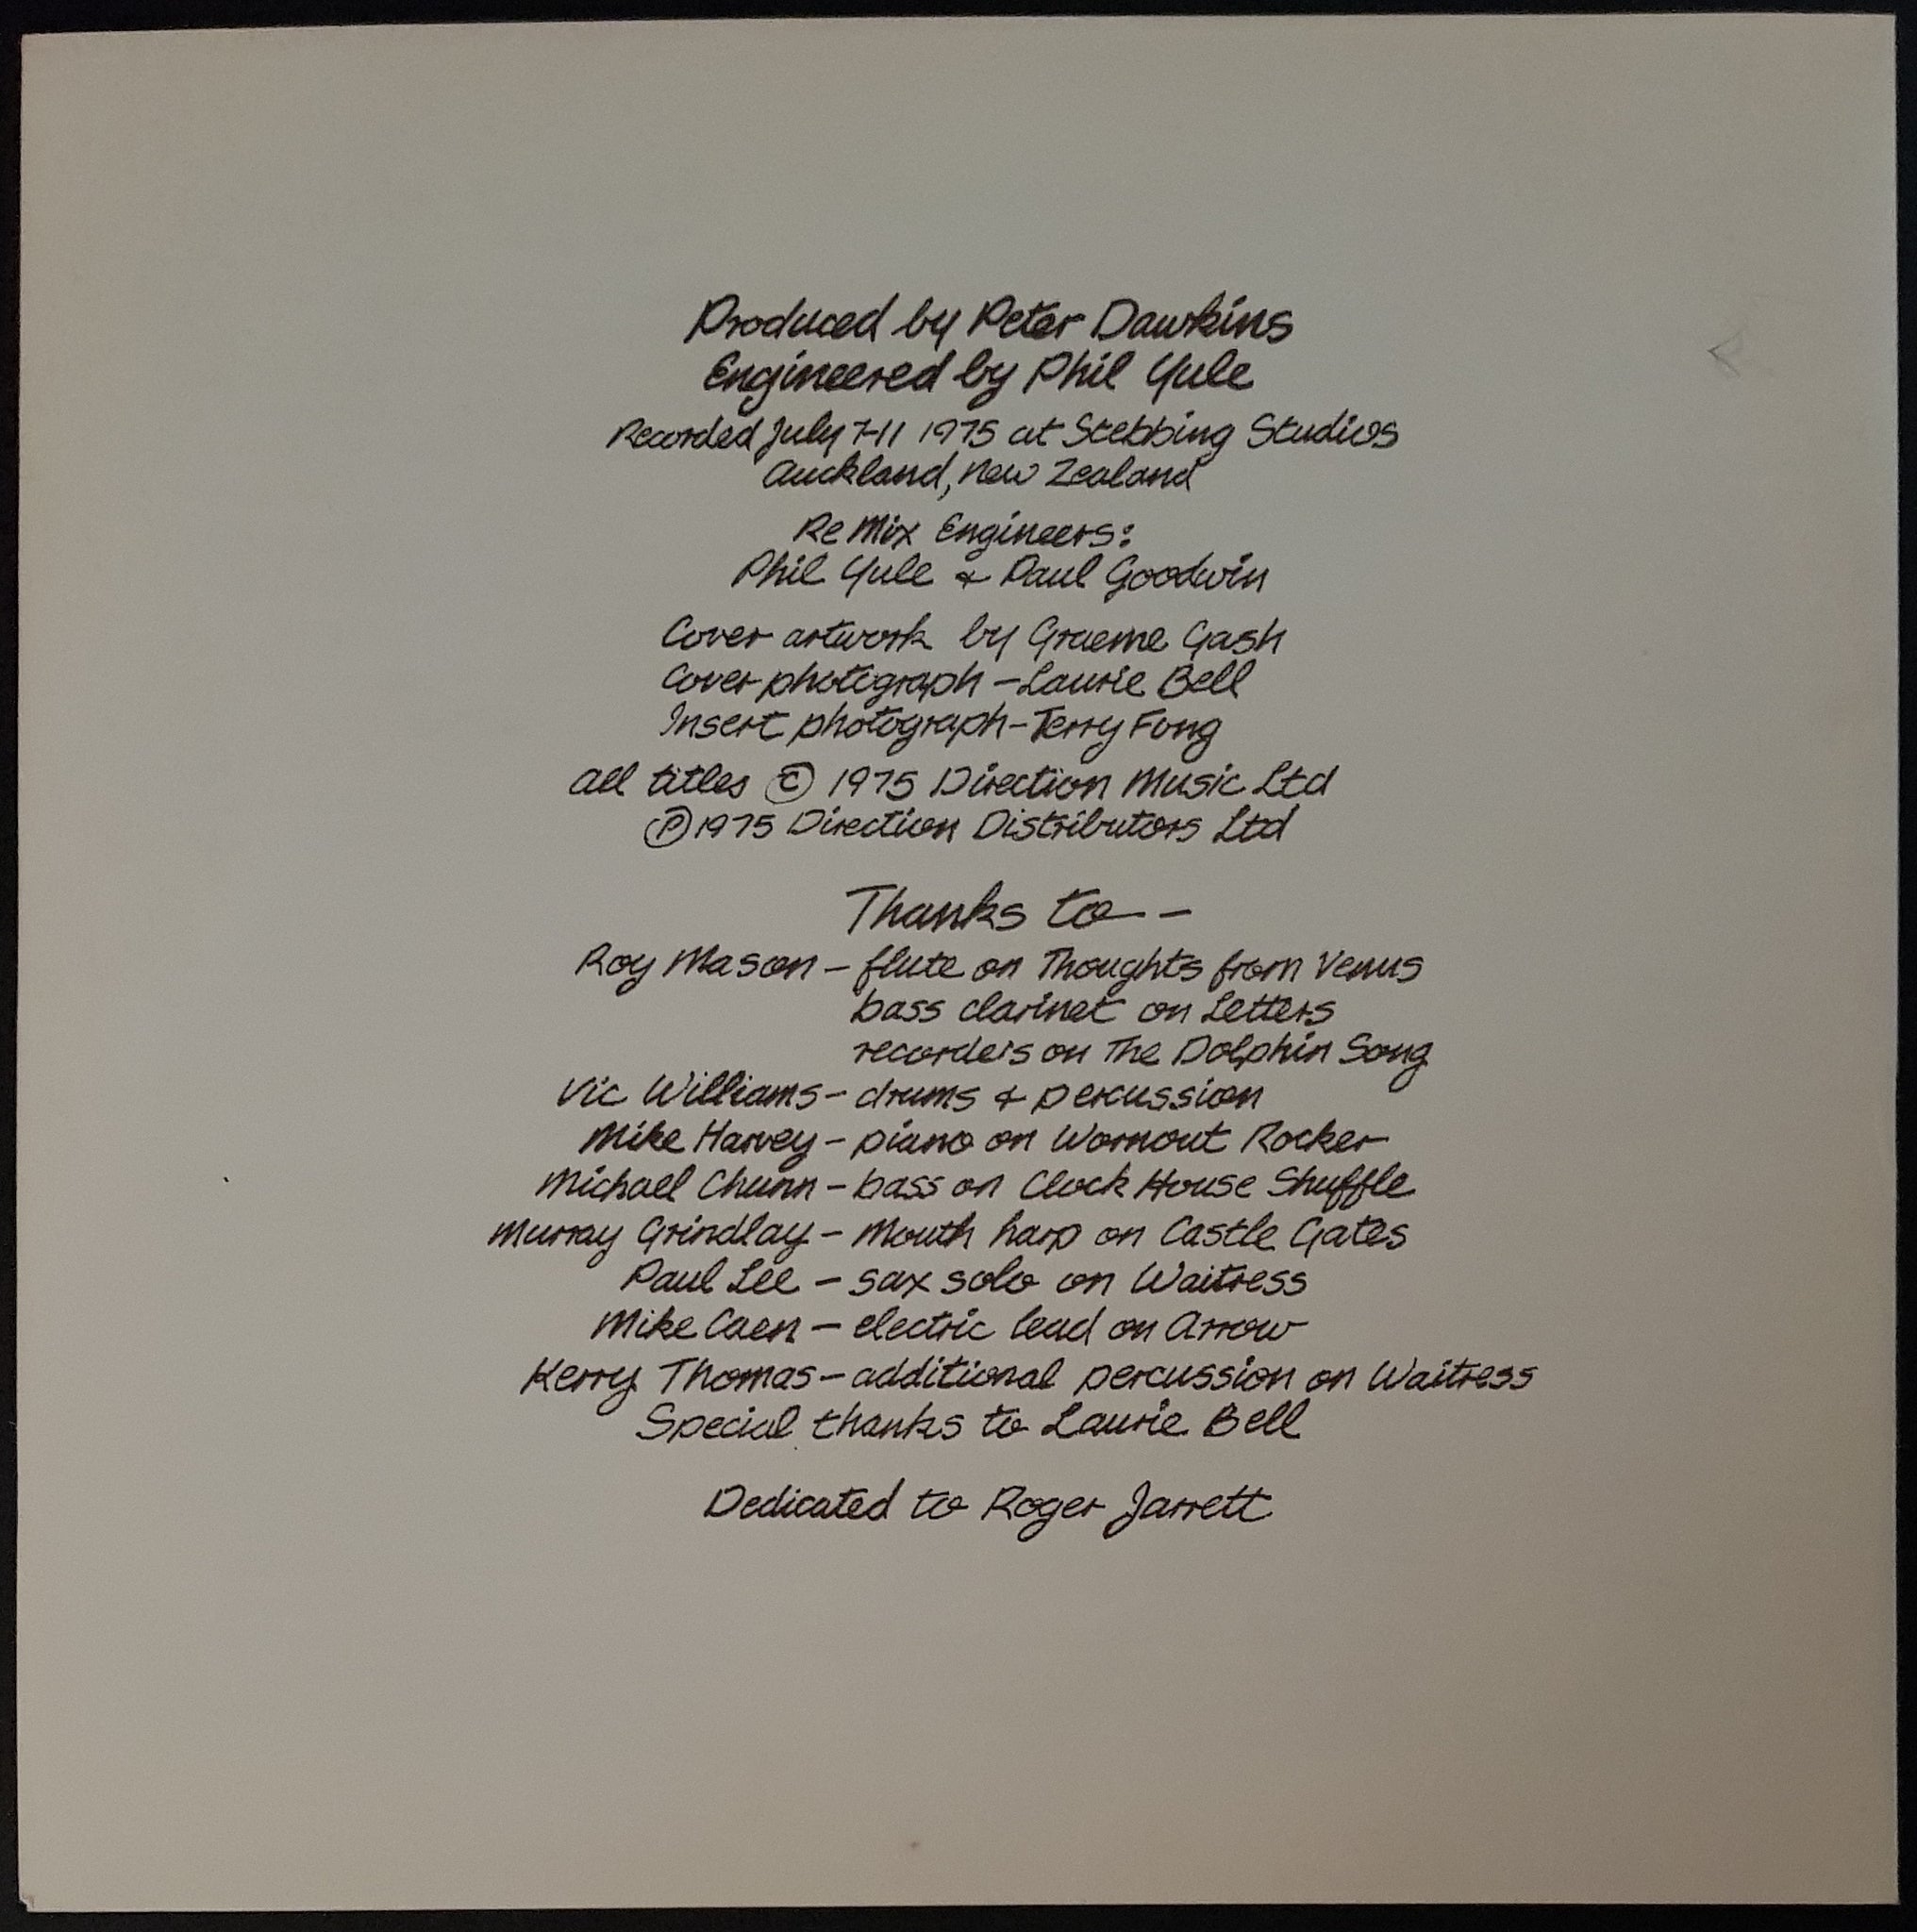 Produced by Peter Dawkins
Engineered by Phil Yule
Recorded July 7-11 1975 at Stebbing Studios
Auckland, New Zealand
Re Mix Engineers:
Phil Yule & Paul Goodwin
Cover artwork by Graeme Gash
Cover photograph - Laurie Bell
Insert photograph - Terry Fong
All titles © 1975 Direction Music Ltd
℗ 1975 Direction Distributors Ltd
Thanks to - -
Roy Mason - flute on Thoughts from Venus
bass clarinet on Letters
recorders on The Dolphin Song
Vic Williams - drums & percussion
Mike Harvey - piano on Wornout Rocker
Michael Chunn - bass on Clock House Shuffle
Murray Grindlay - Mouth harp on Castle Gates
Paul Lee - sax solo on Waitress
Mike Caen - electric lead on Arrow
Kerry Thomas - additional percussion on Waitress
Special thanks to Laurie Bell
Dedicated to Roger Jarrett